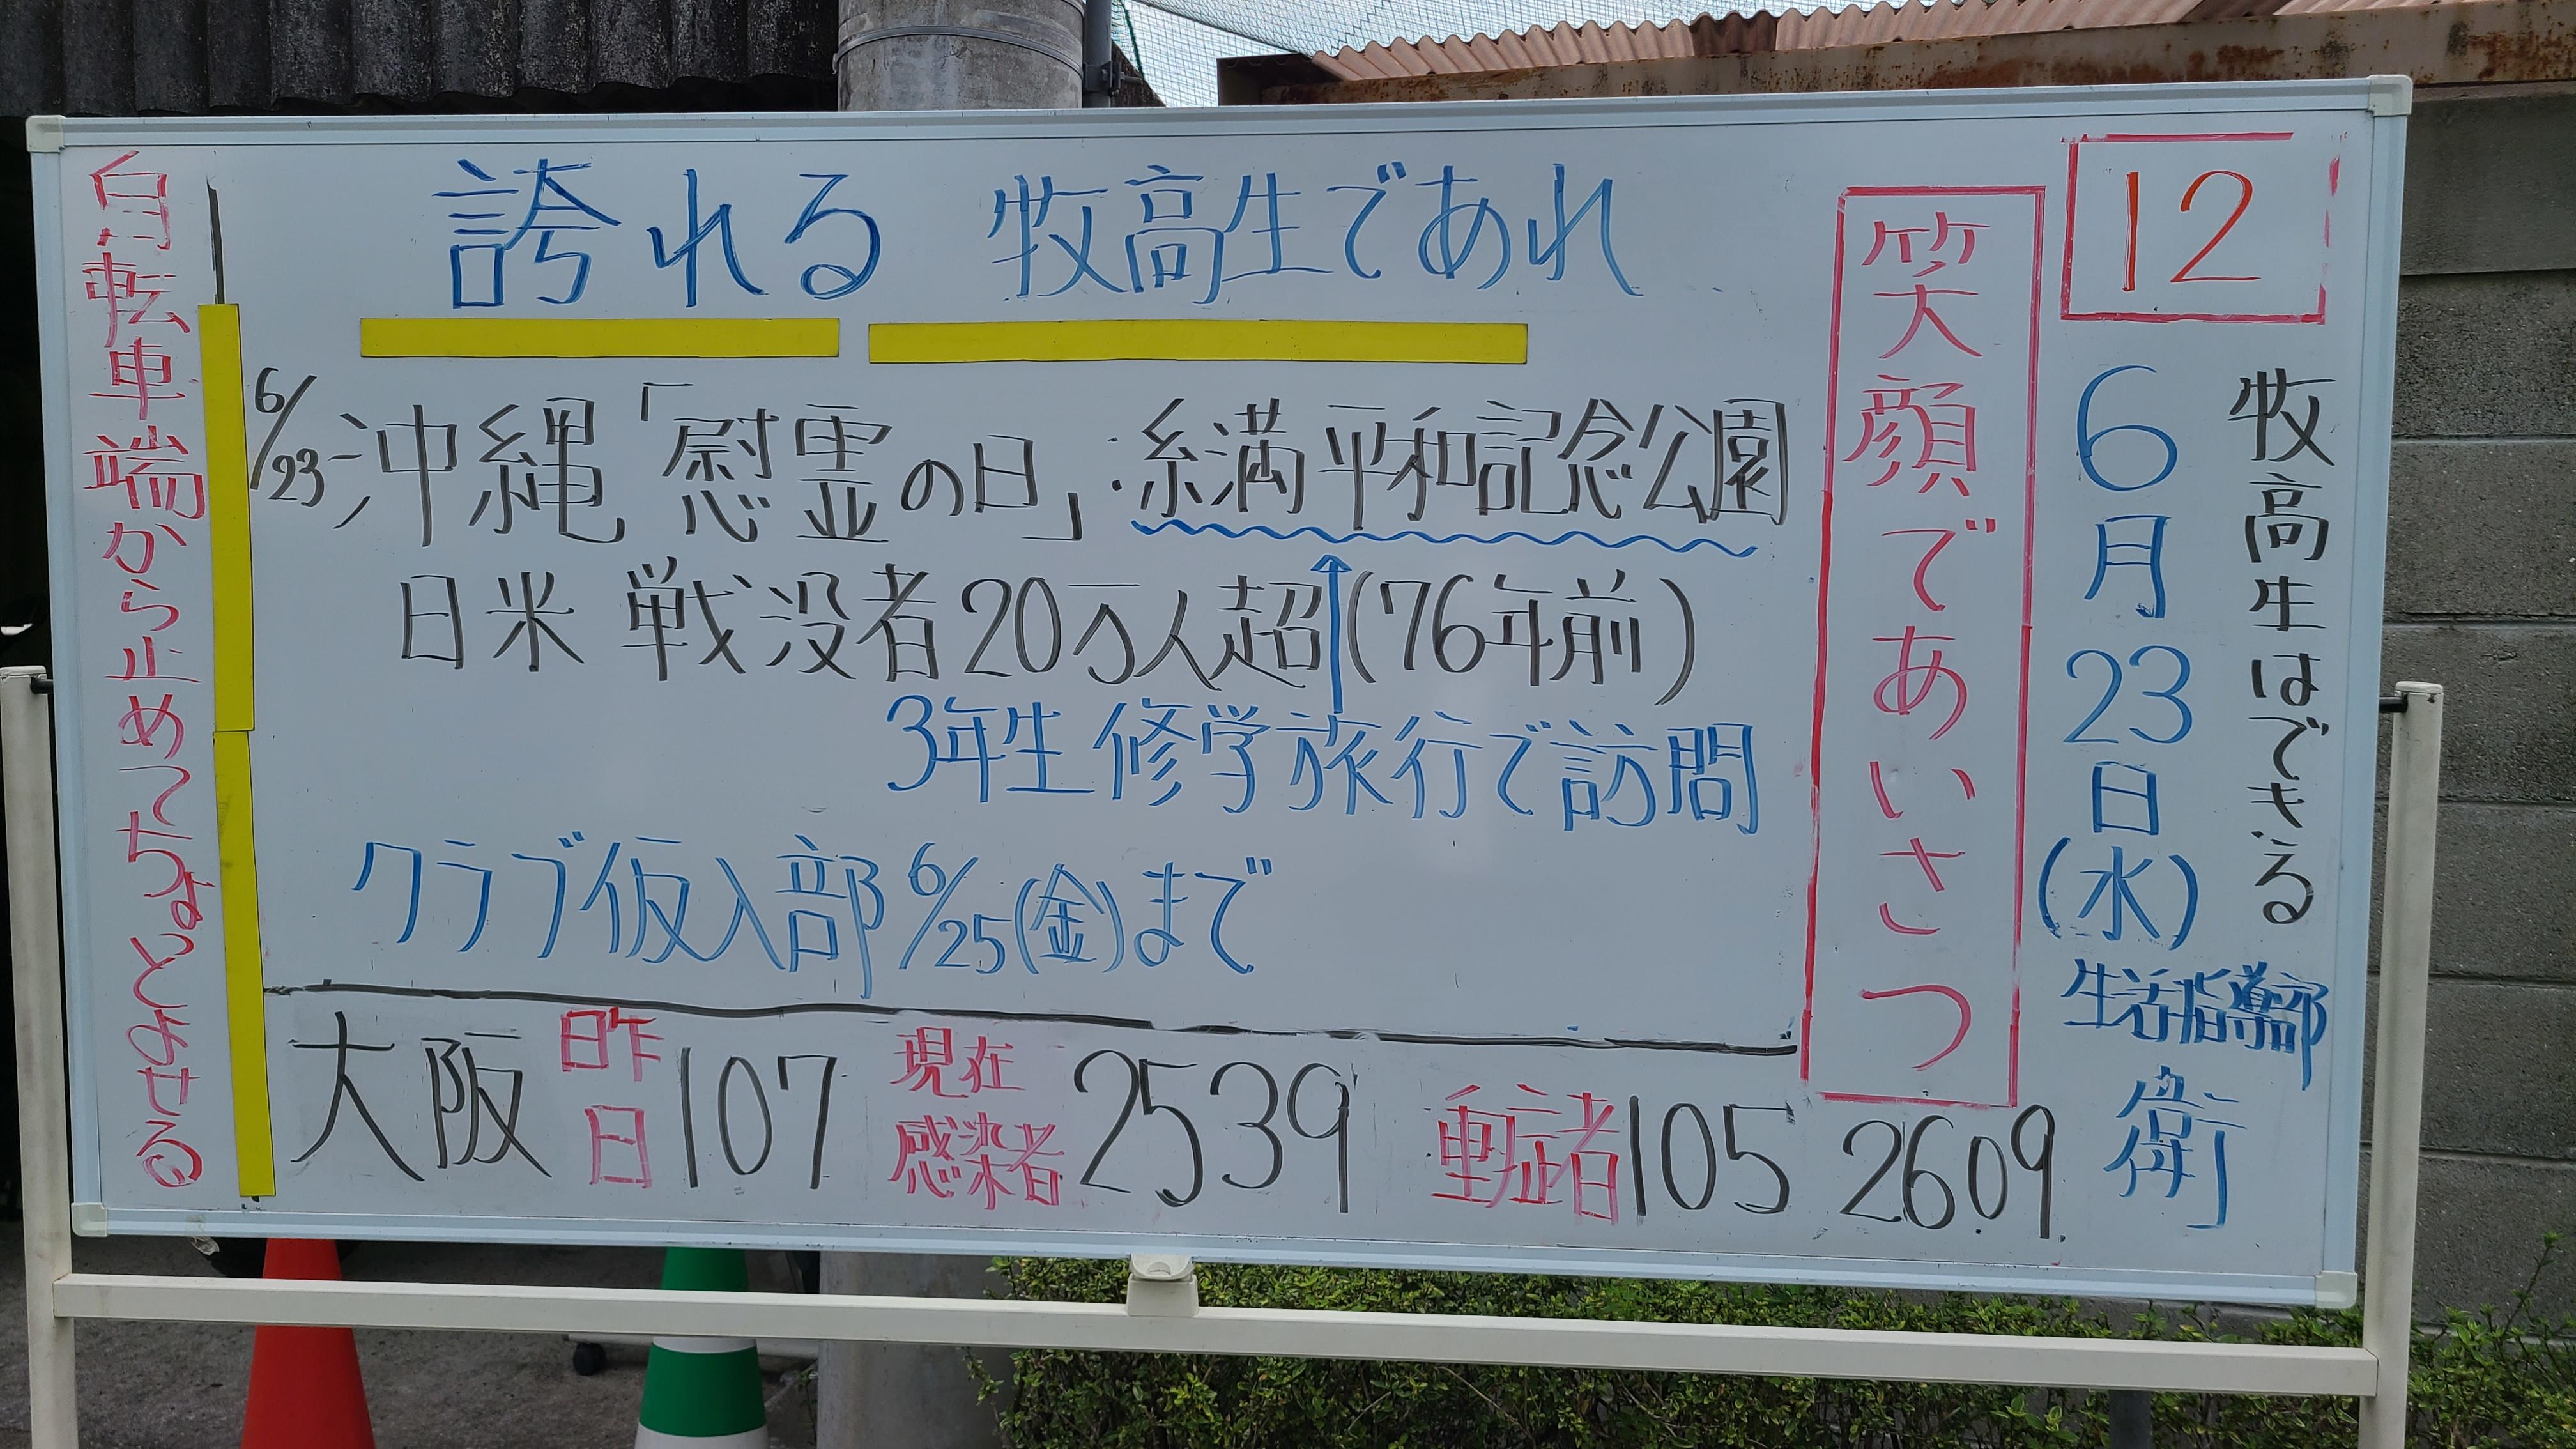 12
牧高生はできる
6月23日(水)
生活指導部
衛
笑顔であいさつ
誇れる 牧高生であれ
6/23 沖縄「慰霊の日」:糸満平和記念公園
日米戦没者20万人超(76年前)
3年生修学旅行で訪問
クラブ仮入部6/25(金)まで
大阪 昨日 107 現在感染者 2539 重症者 105 2609
自転車端から止めてちょっとみせる